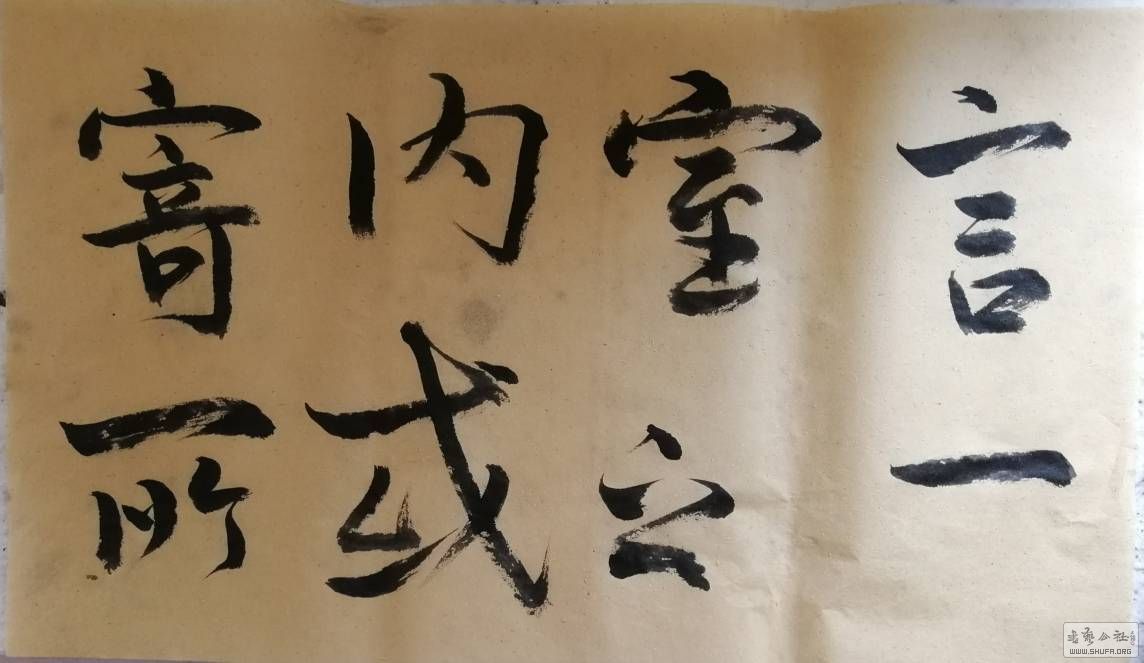 言一
室之
内或
寄所
书艺公社
WWW.SHUFA.ORG